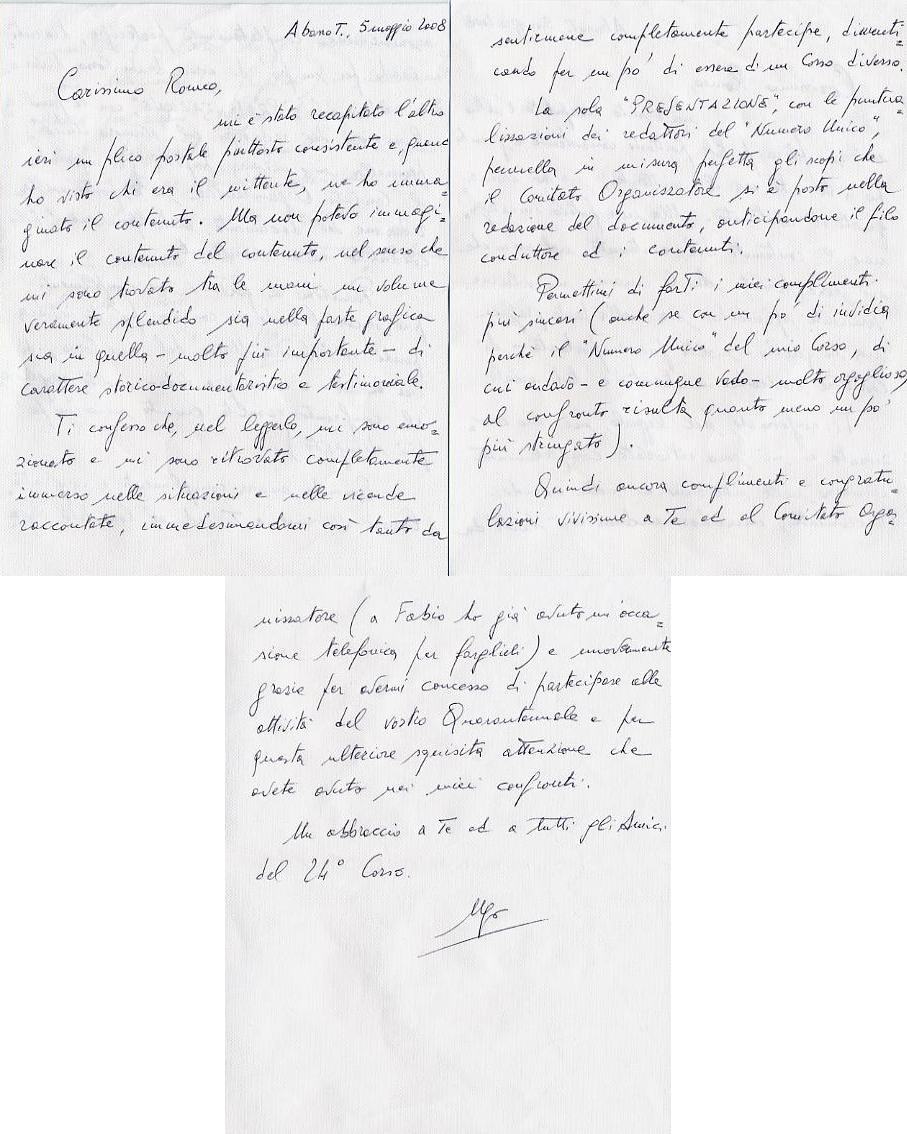 Abano T., 5 maggio 2008
Carissimo Romeo,
mi è stato recapitato l'altro
ieri un plico postale piuttosto consistente e, quand
ho visto chi era il mittente, ne ho imma=
ginato il contenuto. Ma non potevo immagi=
nare il contenuto del contenuto, nel senso che
mi sono trovato tra le mani un volume
veramente splendido sia nella parte grafica
sia in quella - molto più importante - di
carattere storico-documentaristico e testimoniale.
Ti confesso che, nel leggerlo, mi sono emo=
zionato e mi sono ritrovato completamente
immerso nelle situazioni e nelle vicende
raccontate, immedesimandomi così tanto da
sentirmene completamente partecipe, dimenti=
cando per un pò di essere di un Corso diverso.
La sola "PRESENTAZIONE", con le puntua=
lizzazioni dei redattori del "Numero Unico",
pennella in misura perfetta gli scopi che
il Comitato Organizzatore si è posto nella
redazione del documento, anticipandone il filo
conduttore ed i contenuti.
Permettimi di farti i miei complimenti
più sinceri (anche se con un pò di invidia
perché il "Numero Unico" del mio Corso, di
cui andavo - e comunque vado - molto orgoglioso,
al confronto risulta quanto meno un pò
più stringato).
Quindi ancora complimenti e congratu=
lazioni vivissime a Te ed al Comitato Orga=
nizzatore (a Fabio ho già avuto un'occa=
sione telefonica per farglieli) e nuovamente
grazie per avermi concesso di partecipare alle
attività del vostro Quarantennale e per
questa ulteriore squisita attenzione che
avete avuto nei miei confronti.
Un abbraccio a Te ed a tutti gli Amici
del 24° Corso.
Ugo